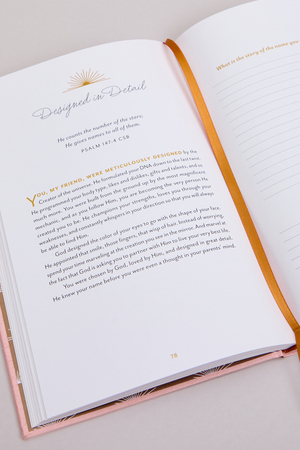 Designed in Detail
He counts the number of the stars;
He gives names to all of them.
PSALM 147:4 CSB
YOU, MY FRIEND, WERE METICULOUSLY DESIGNED by the
Creator of the universe. He formulated your DNA down to the last trace.
He programmed your body type, likes and dislikes, gifts and talents, and so
much more. You were built from the ground up by the most magnificent
mechanic, and as you follow Him, you are becoming the very person He
created you to be. He champions your strengths, loves you through your
weaknesses, and constantly whispers in your direction so that you will always
be able to find Him.
God designed the color of your eyes to go with the shape of your face.
He appointed that smile, those fingers, that wisp of hair. Instead of worrying,
spend your time marveling at the creation you see in the mirror. And marvel at
the fact that God is asking you to partner with Him to live your very best life.
You were chosen by God, loved by Him, and designed in great detail.
He knew your name before you were even a thought in your parents' mind.
78
What is the story of the name you